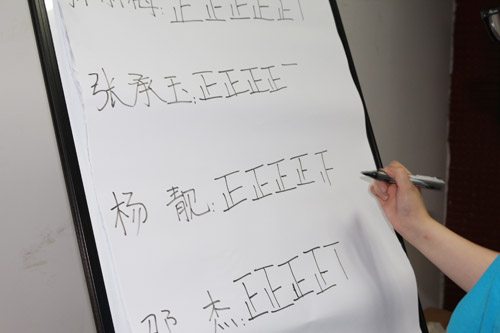 正正正正正丅
张承玉:正正正正一
杨靓:正正正正下
邵杰:正正正正丅